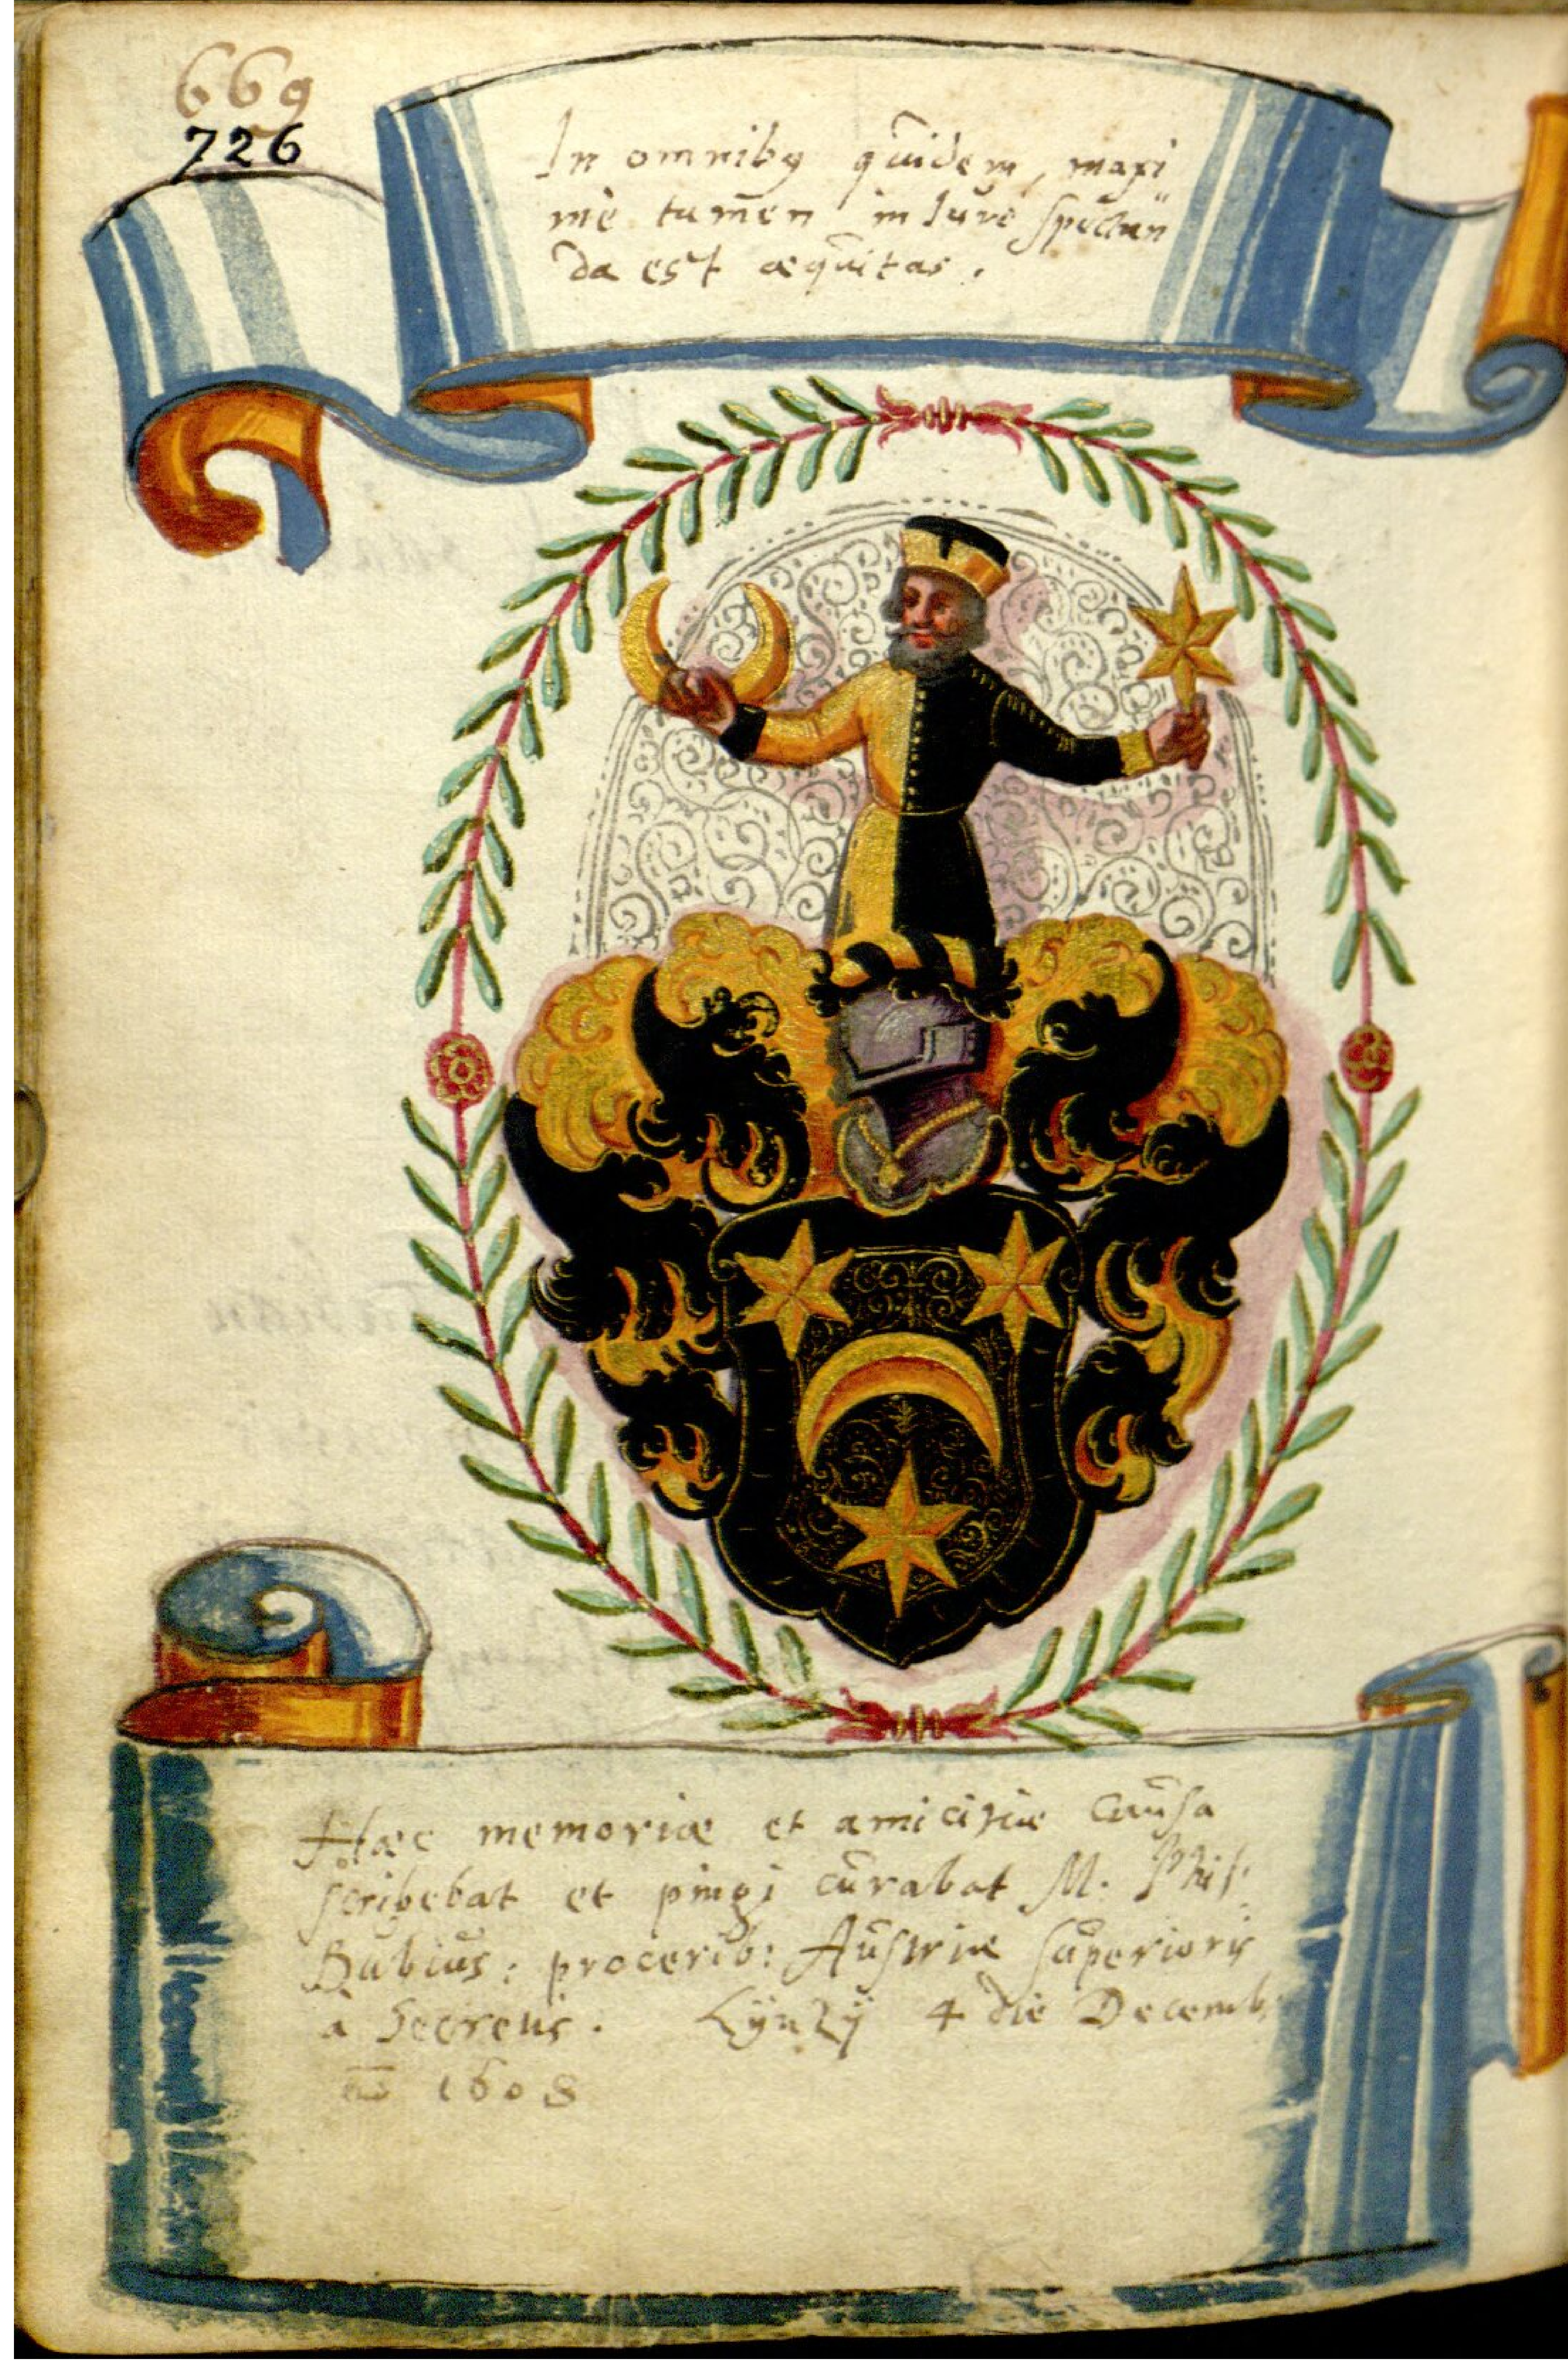 669
726
In omnibꝰ quidem, maxi¬
mè tamen in Iure spectan
da est æquitas.
Hæc memoriæ et amicitiæ causa
scribebat et pingi curabat M. Phil:
Bubius: procerib: Austriæ superioris
à Secretis. Lÿntzÿ 4 die Decemb:
ao 1608